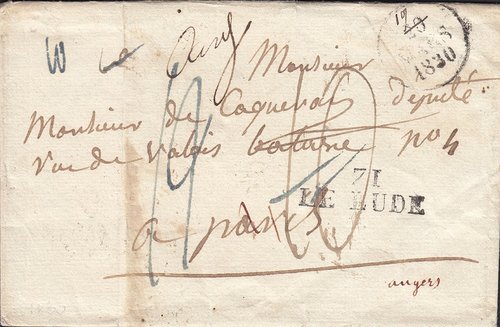 Monsieur
Monsieur de Coquereau député
rue de Valois batave no 4
71
LE LUDE
a paris
angers
1830